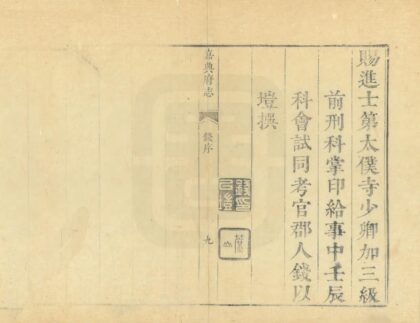 賜進士第太僕寺少卿加三級
前刑科掌印給事中壬辰
科會試同考官郡人錢以
塏撰
嘉興府志
錢序
九